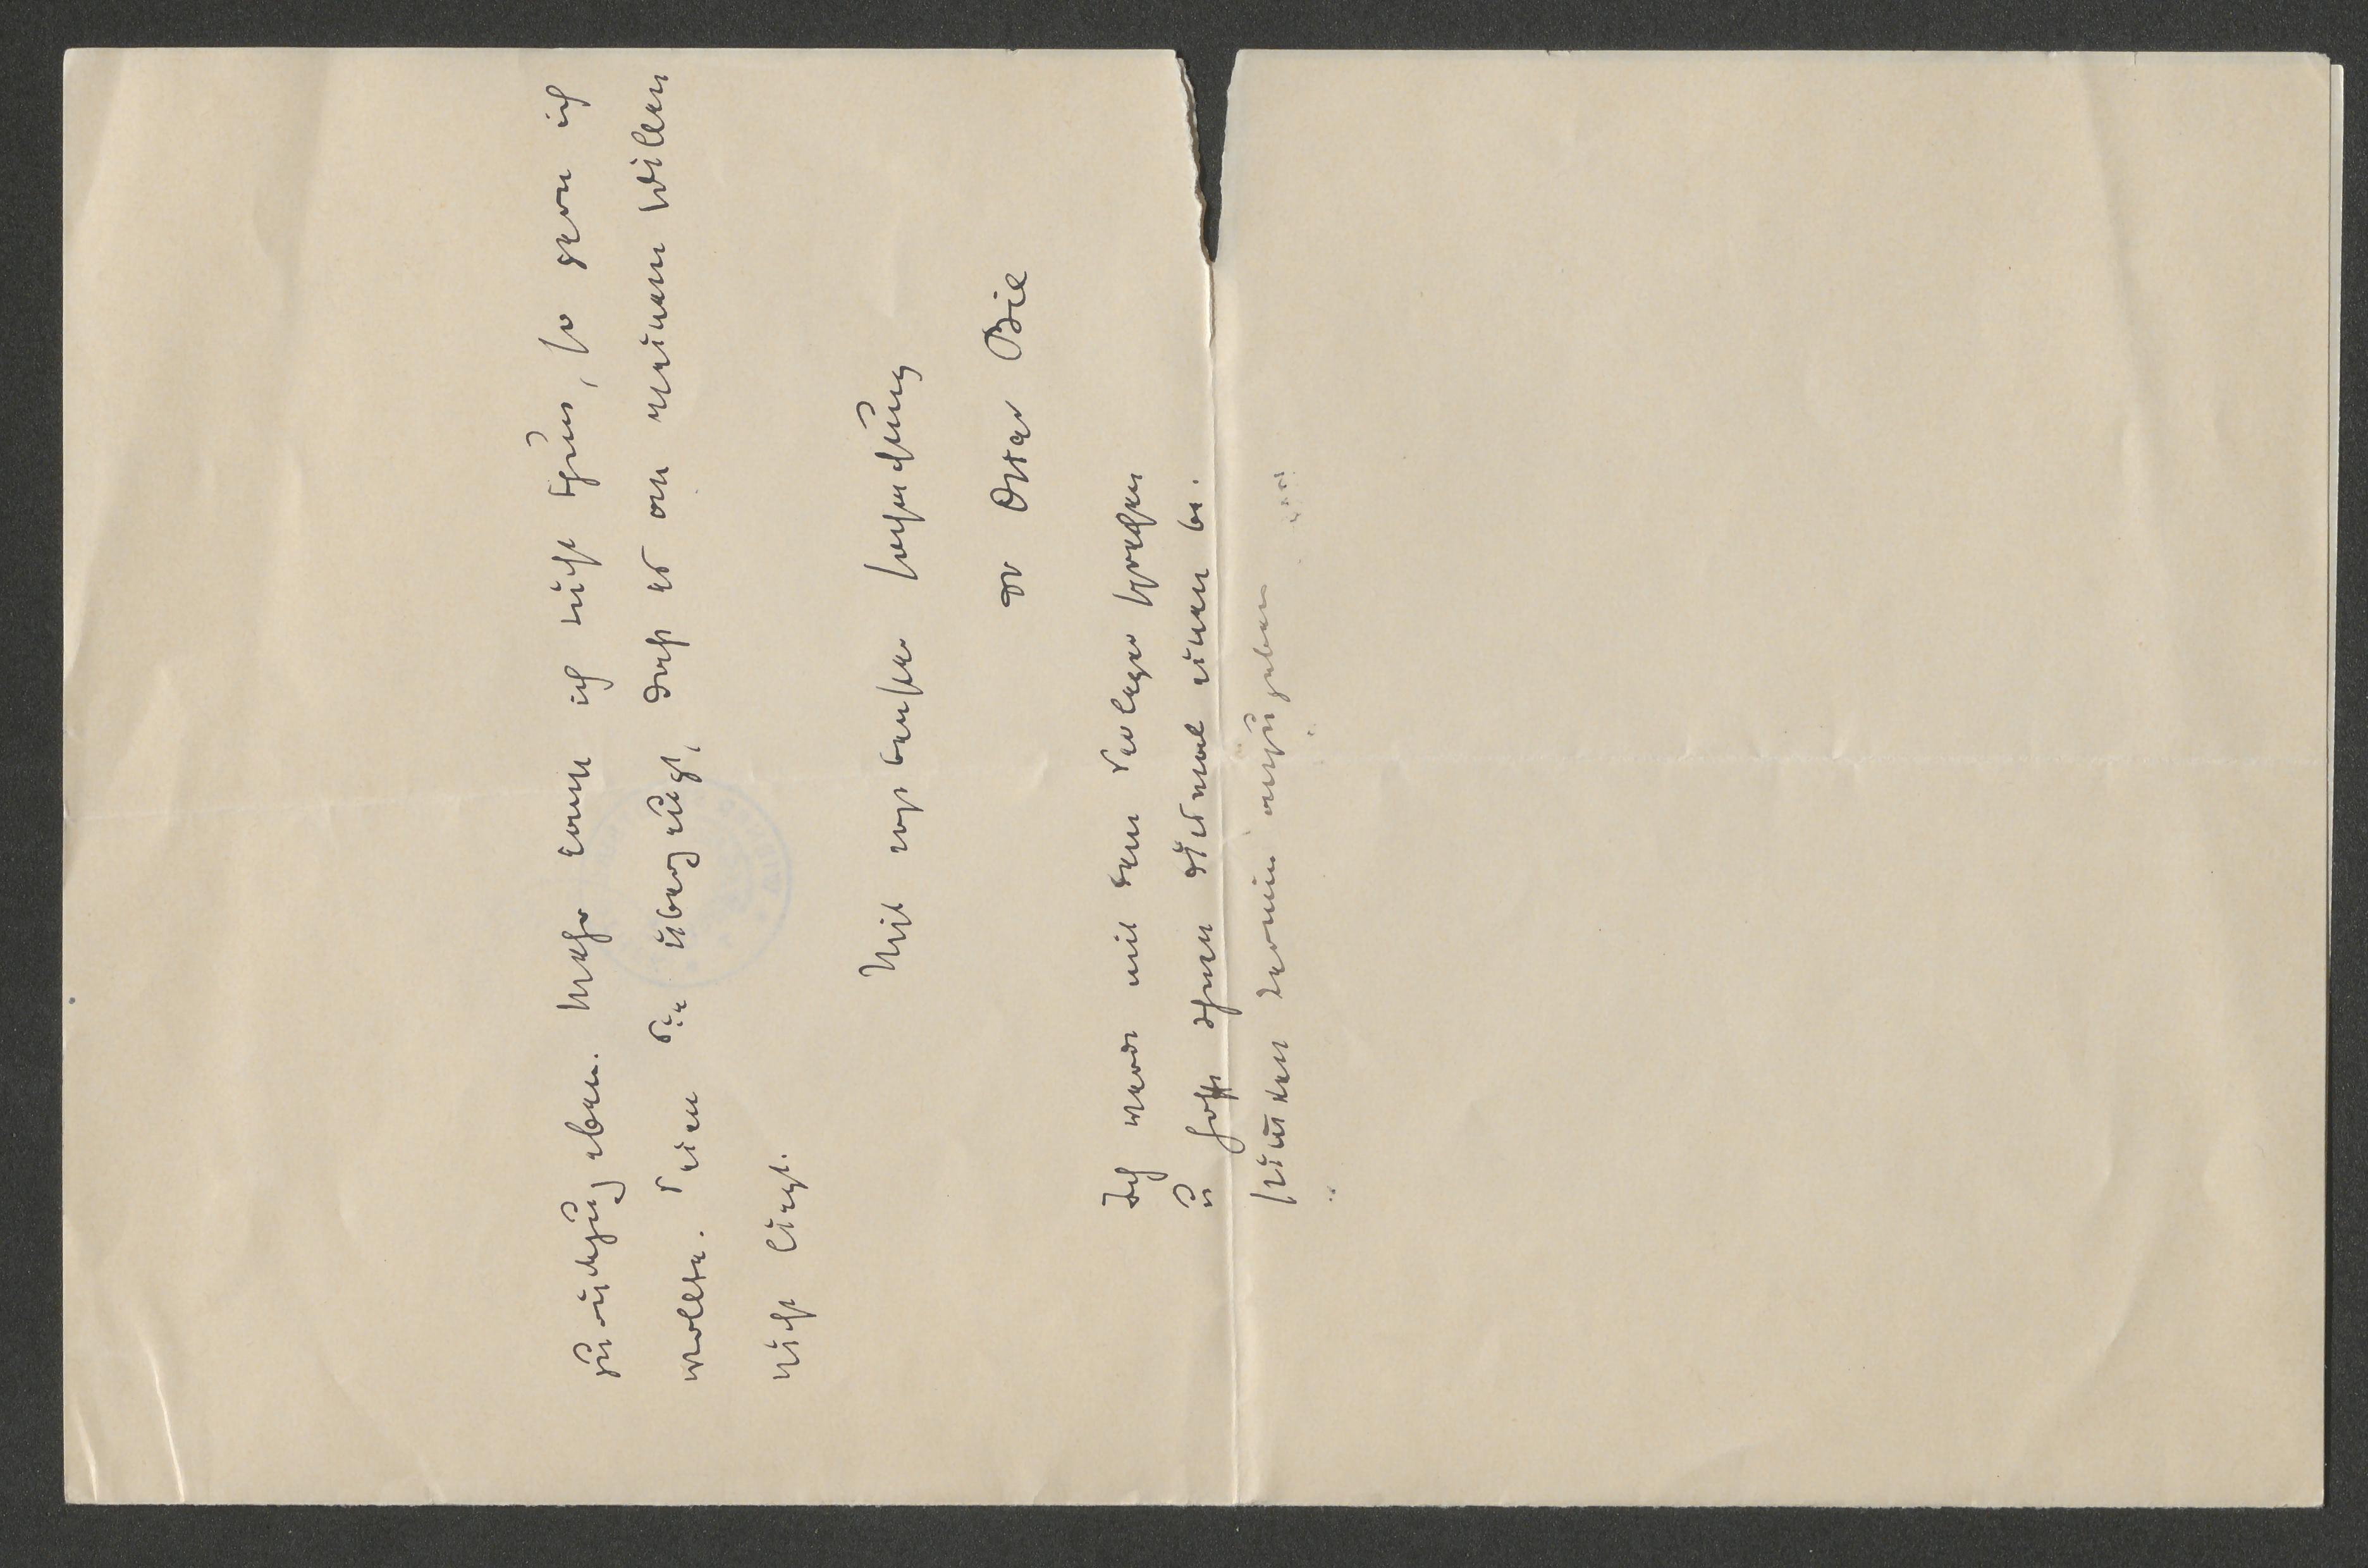 zurückzugeben. Mehr kann ich nicht thun, so gern ich
wollte. Seien Sie überzeugt, daß es an meinem Willen
nicht liegt.
Mit ergebenster
Dr Oskar Bie
Ich werde mit dem Verleger sprechen
u hoffe Ihnen diesmal einen be-
stimmten Termin anzugeben